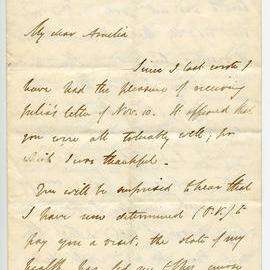 My dear Amelia
Since I last wrote I
have had the pleasure of receiving
Julia's letter of Nov. 10. It appeared that
you were all tolerably well; for
which I was thankful.
You will be surprised to hear that
I have now determined (D.V.) to
pay you a visit. the state of my
health has led me to